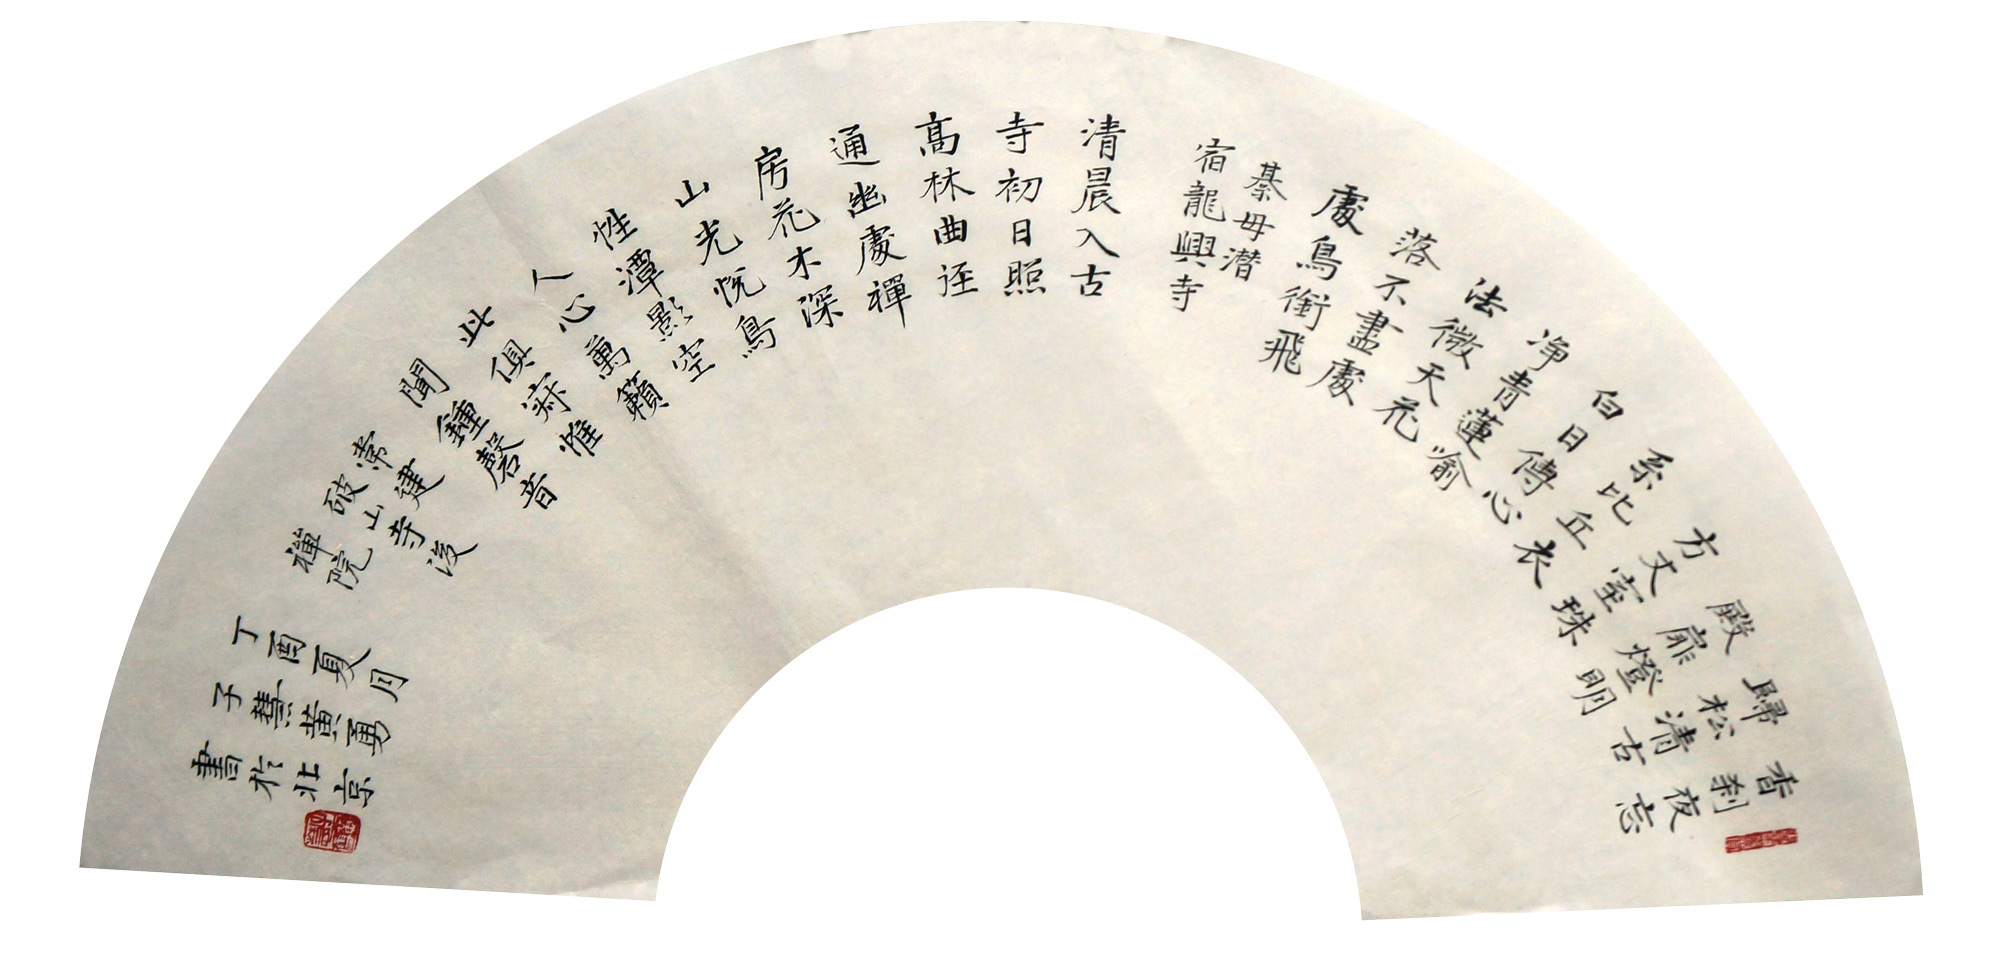 香刹夜忘
歸松清古
殿扉燈明
方丈室珠
系比丘衣
白日傳心
净青蓮喻
法微天花
落不盡處
處鳥銜飛
綦毋潜
宿龍興寺
清晨入古
寺初日照
髙林曲迳
通幽處禪
房花木深
山光悅鳥
性潭影空
人心萬籟
此俱寂惟
聞鍾磬音
常建
破山寺後
禪院
丁酉夏月
子慧黄勇
書於北京